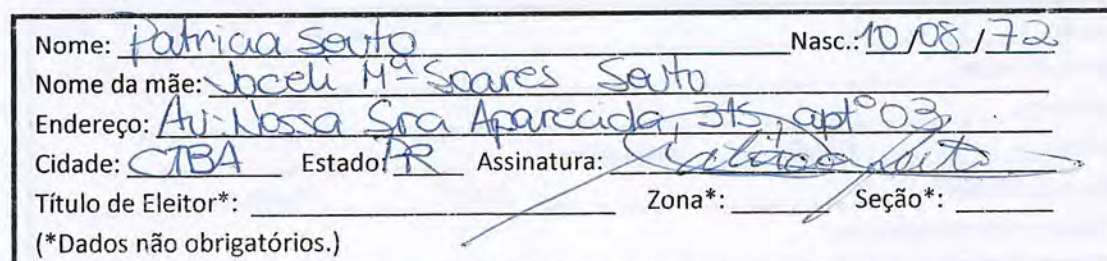 Nome: Patricia Souto Nasc.: 10/08/72
Nome da mãe: Joceli Mª Soares Souto
Endereço: Av. Nossa Sra Aparecida, 315, aptº 03
Cidade: CTBA Estado: PR Assinatura: Patricia Souto
Título de Eleitor*: Zona*: Seção*:
(*Dados não obrigatórios.)